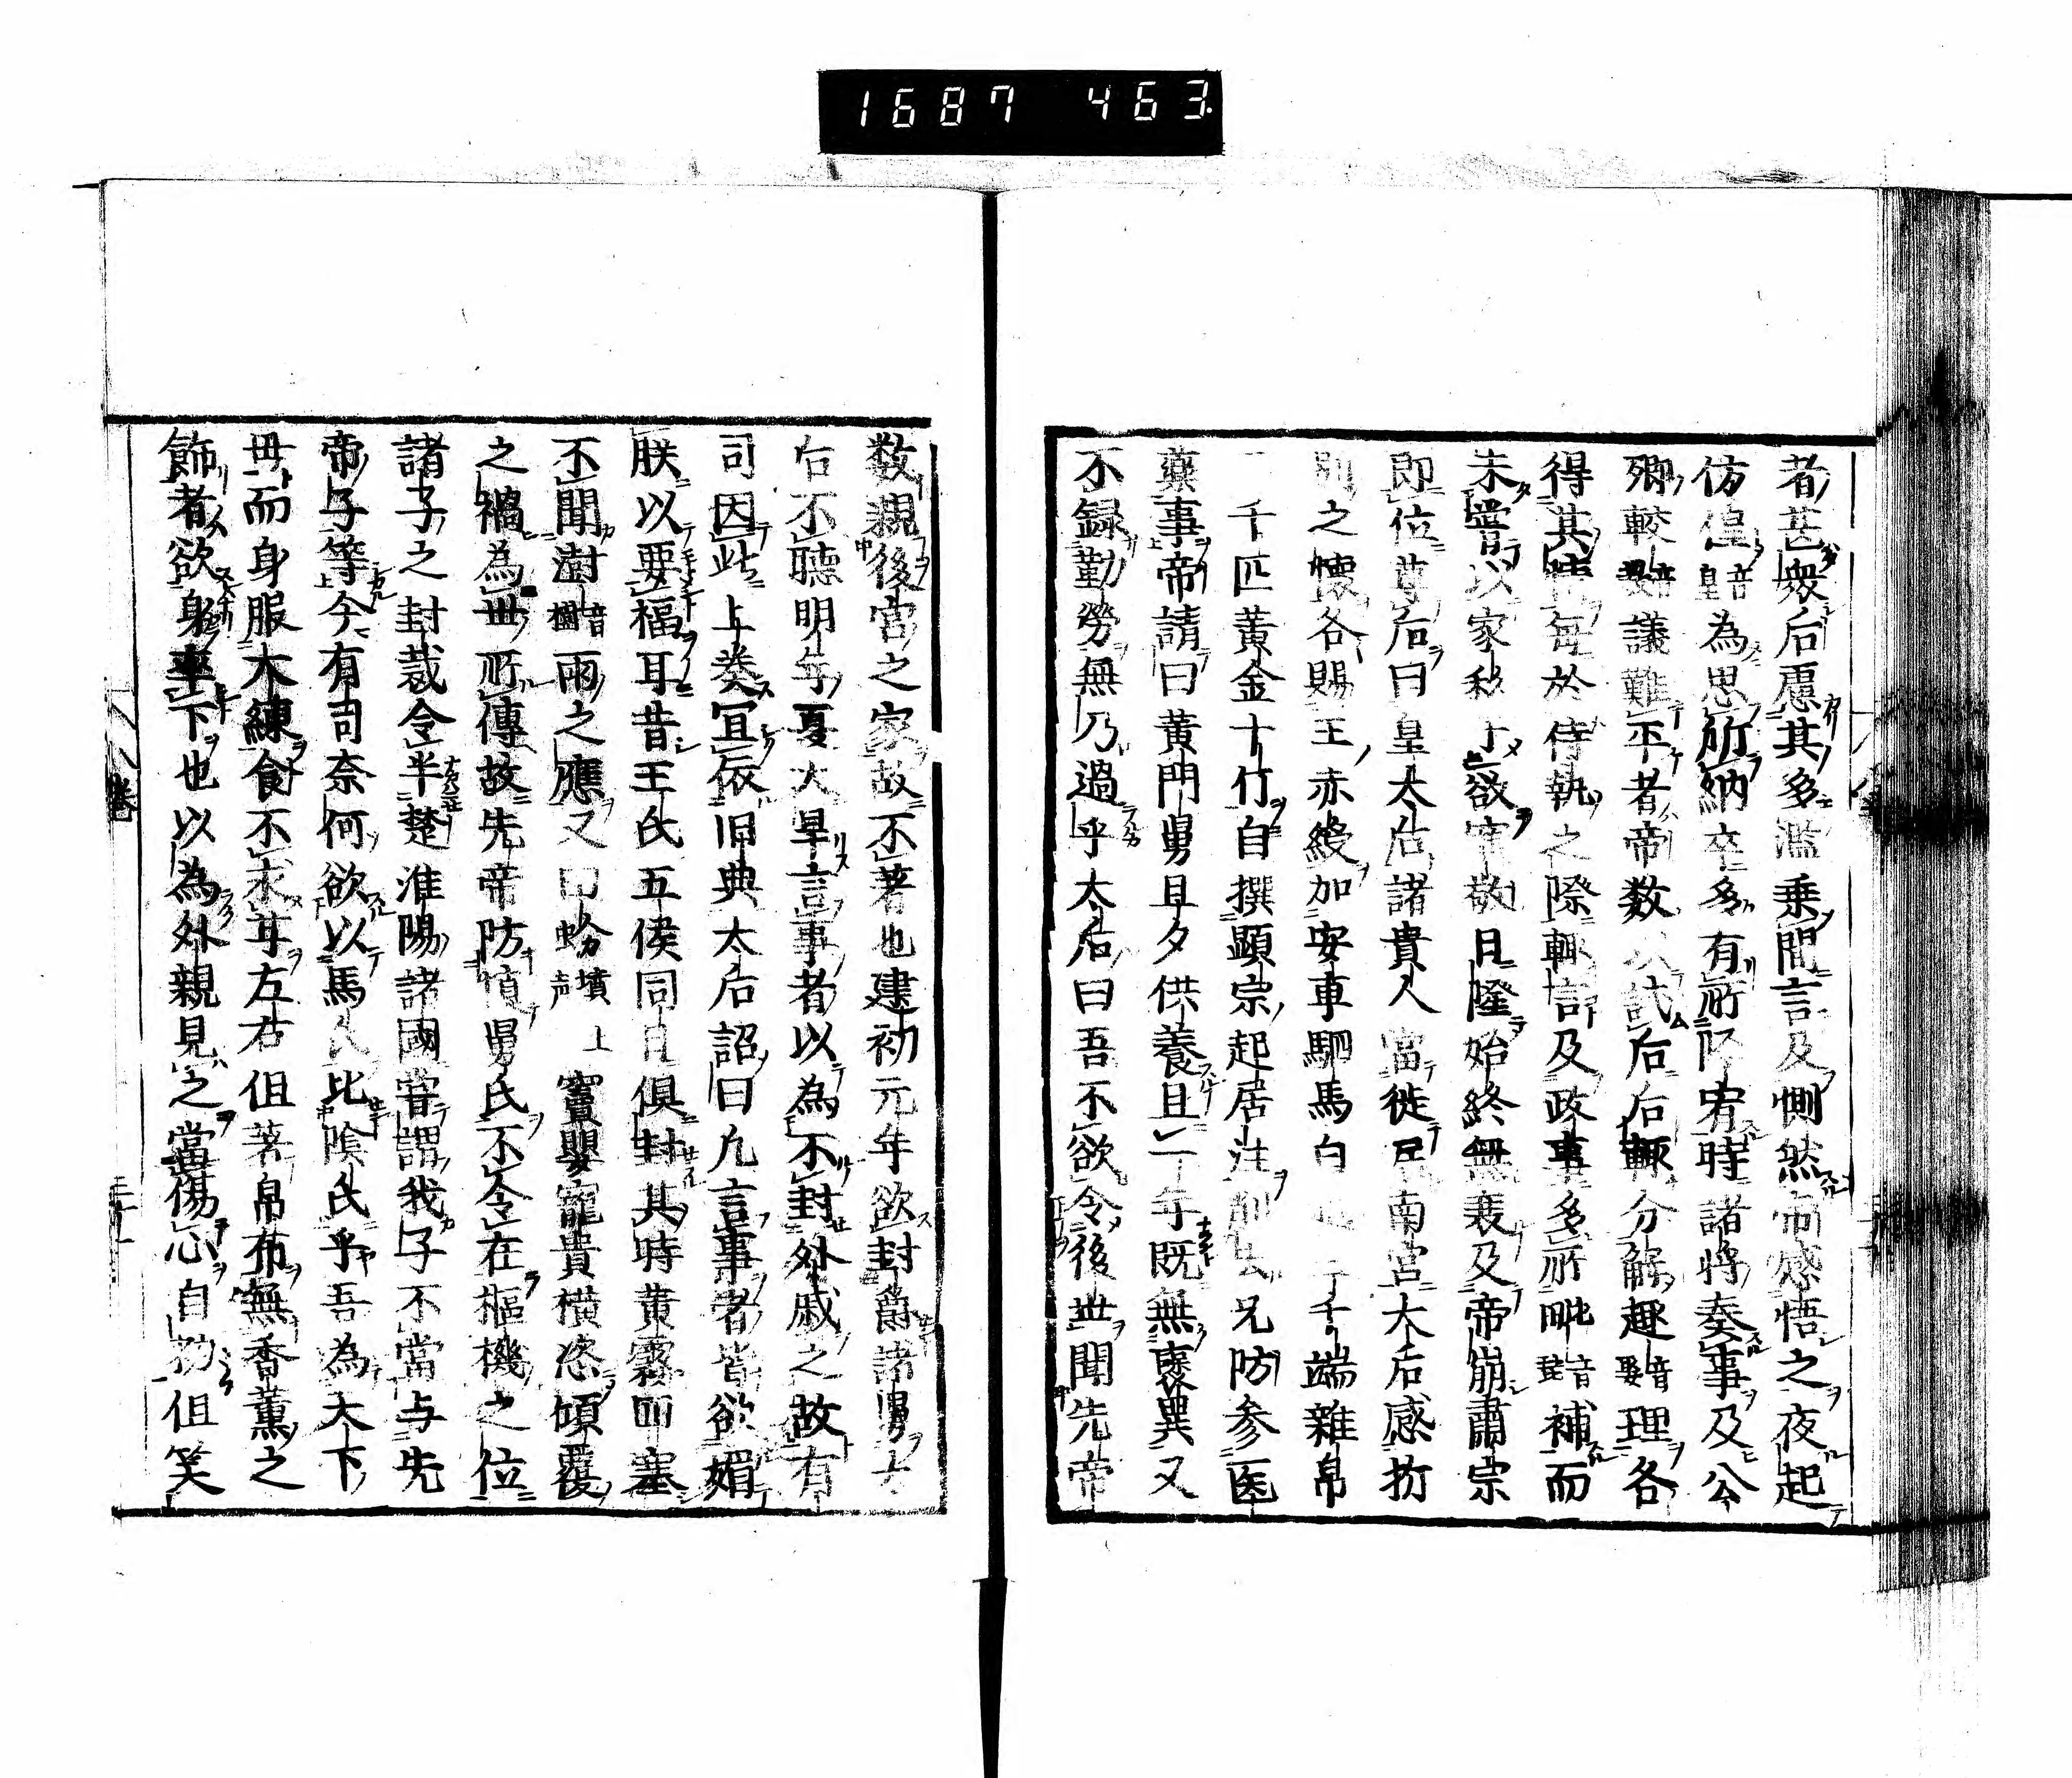 1687 463
者甚衆后慮其多濫乗間言及惻然帝感悟之夜起
仿偟音皇為思所納卒多有所降宥時諸将奏事及公
卿較議難平者帝数以試后后輙分解趣音娶理各
得其情每於侍執之際輙言及政事多所毗音毘補而
未嘗以家私干欲寵敬日隆始終無衰及帝崩肅宗
即位尊后曰皇太后諸貴人當徙居南宮太后感析
別之懷各賜王赤綬加安車駟馬白越三千端雜帛
二千匹黃金十斤自撰顕宗起居注削去兄防参医
藥事帝請曰黃門舅旦夕供養且一年既無褒異又
不録勤勞無乃過乎太后曰吾不欲令後世聞先帝
数親後宮之家故不著也建初元年欲封爵諸舅太
后不聴明年夏大旱言事者以為不封外戚之故有
司因此上奏冝依旧典太后詔曰凢言事者皆欲媚
朕以要福耳昔王氏五侯同日俱封其時黄霧四塞
不聞澍音樹雨之應又田蚡墳上声竇嬰寵貴横恣傾覆
之禍為世所傳故先帝防慎舅氏不令在樞機之位
諸子之封裁令半楚淮陽諸國甞謂我子不當与先
帝子等今有司奈何欲以馬氏比陰氏乎吾為天下
毋而身服大練食不求甘左右但著帛布無香薫之
飾者欲身率下也以為外親見之當傷心自勑但笑
卷